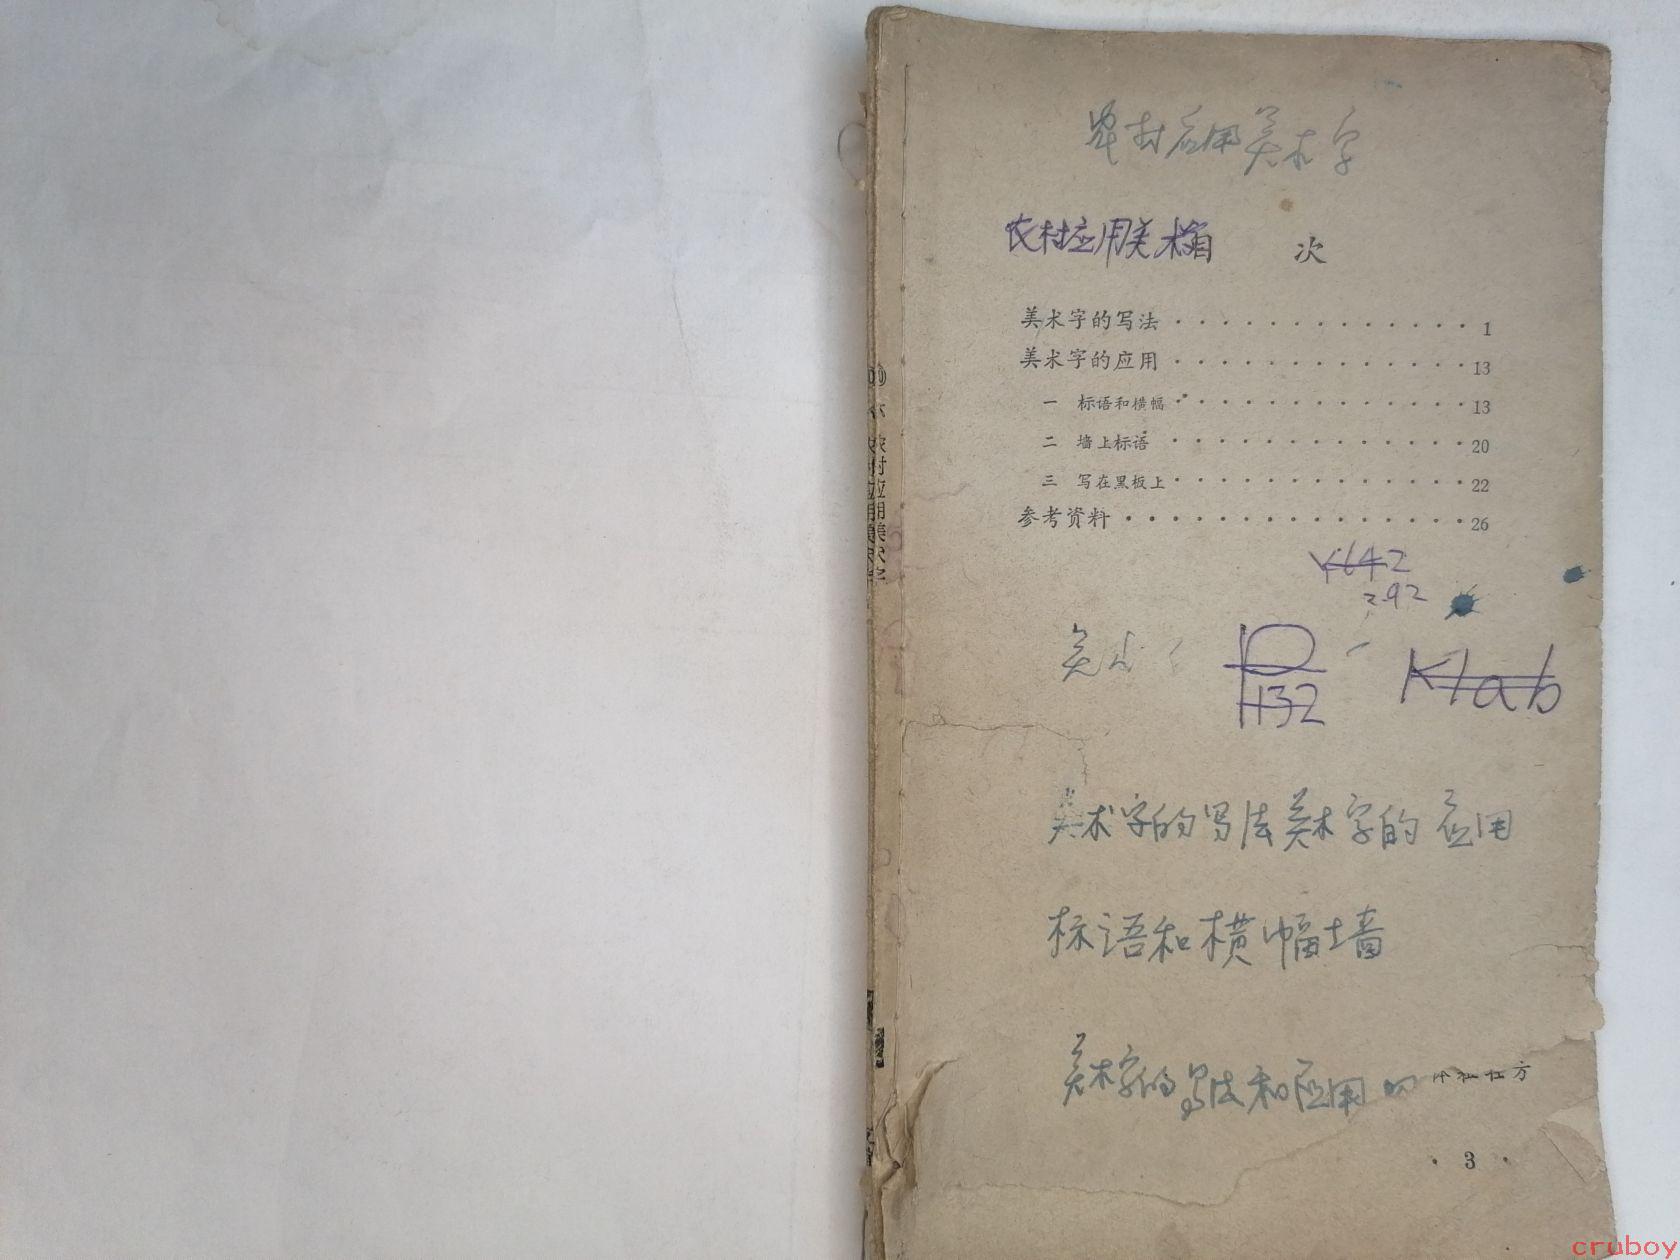 农村应用美术字
农村应用美术字
目 次
美术字的写法 · · · · · · · · · · · · · 1
美术字的应用 · · · · · · · · · · · · · 13
一 标语和横幅 · · · · · · · · · · · · · 13
二 墙上标语 · · · · · · · · · · · · · 20
三 写在黑板上 · · · · · · · · · · · · · 22
参考资料 · · · · · · · · · · · · · · · 26
292
美术
132
美术字的写法美术字的应用
标语和横幅墙
美术字的写法和应用
· 3 ·
农村应用美术字
cruboy